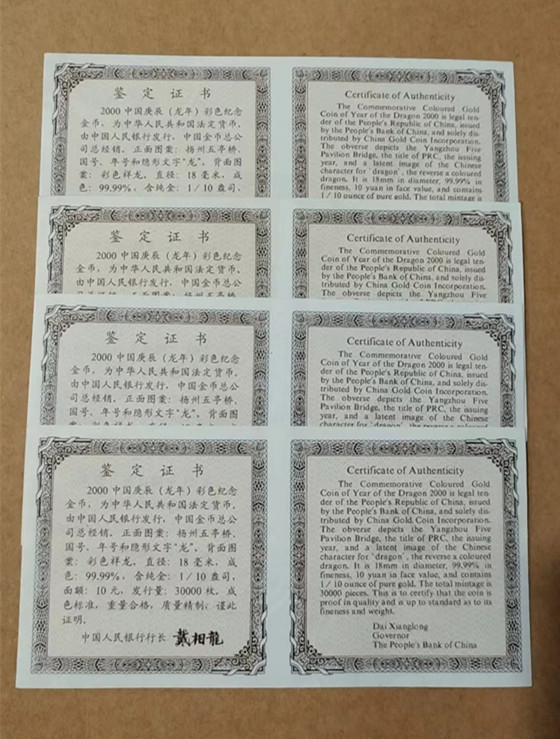 鉴定证书
2000中国庚辰（龙年）彩色纪念
金币，为中华人民共和国法定货币，
由中国人民银行发行，中国金币总公
司总经销。正面图案：扬州五亭桥、
国号、年号和隐形文字“龙”，背面图
案：彩色祥龙，直径：18毫米，成
色：99.99%，含纯金：1/10盎司，
Certificate of Authenticity
The Commemorative Coloured Gold
Coin of Year of the Dragon 2000 is legal ten-
der of the People's Republic of China, issued
by the People's Bank of China, and solely dis-
tributed by China Gold Coin Incorporation.
The obverse depicts the Yangzhou Five
Pavilion Bridge, the title of PRC, the issuing
year, and a latent image of the Chinese
character for `dragon`, the reverse a coloured
dragon. It is 18mm in diameter, 99.99% in
fineness, 10 yuan in face value, and contains
1/10 ounce of pure gold. The total mintage is
鉴定证书
2000中国庚辰（龙年）彩色纪念
金币，为中华人民共和国法定货币，
由中国人民银行发行，中国金币总公
司总经销。正面图案：扬州五亭桥、
Certificate of Authenticity
The Commemorative Coloured Gold
Coin of Year of the Dragon 2000 is legal ten-
der of the People's Republic of China, issued
by the People's Bank of China, and solely dis-
tributed by China Gold Coin Incorporation.
The obverse depicts the Yangzhou Five
鉴定证书
2000中国庚辰（龙年）彩色纪念
金币，为中华人民共和国法定货币，
由中国人民银行发行，中国金币总公
司总经销，正面图案：扬州五亭桥、
国号、年号和隐形文字“龙”，背面图
Certificate of Authenticity
The Commemorative Coloured Gold
Coin of Year of the Dragon 2000 is legal ten-
der of the People's Republic of China, issued
by the People's Bank of China, and solely dis-
tributed by China Gold Coin Incorporation.
The obverse depicts the Yangzhou Five
Pavilion Bridge, the title of PRC, the issuing
year, and a latent image of the Chinese
character for `dragon`, the reverse a coloured
鉴定证书
2000中国庚辰（龙年）彩色纪念
金币，为中华人民共和国法定货币，
由中国人民银行发行，中国金币总公
司总经销。正面图案：扬州五亭桥、
国号、年号和隐形文字“龙”，背面图
案：彩色祥龙，直径：18毫米，成
色：99.99%，含纯金：1/10盎司，
面额：10元，发行量：30000枚，成
色标准，重量合格，质量精制；谨此
证明。
中国人民银行行长 戴相龍
Certificate of Authenticity
The Commemorative Coloured Gold
Coin of Year of the Dragon 2000 is legal ten-
der of the People's Republic of China, issued
by the People's Bank of China, and solely dis-
tributed by China Gold Coin Incorporation.
The obverse depicts the Yangzhou Five
Pavilion Bridge, the title of PRC, the issuing
year, and a latent image of the Chinese
character for `dragon`, the reverse a coloured
dragon. It is 18mm in diameter, 99.99% in
fineness, 10 yuan in face value, and contains
1/10 ounce of pure gold. The total mintage is
30000 pieces. This is to certify that the coin is
proof in quality and is up to standard as to its
fineness and weight.
Dai Xianglong
Governor
The People's Bank of China